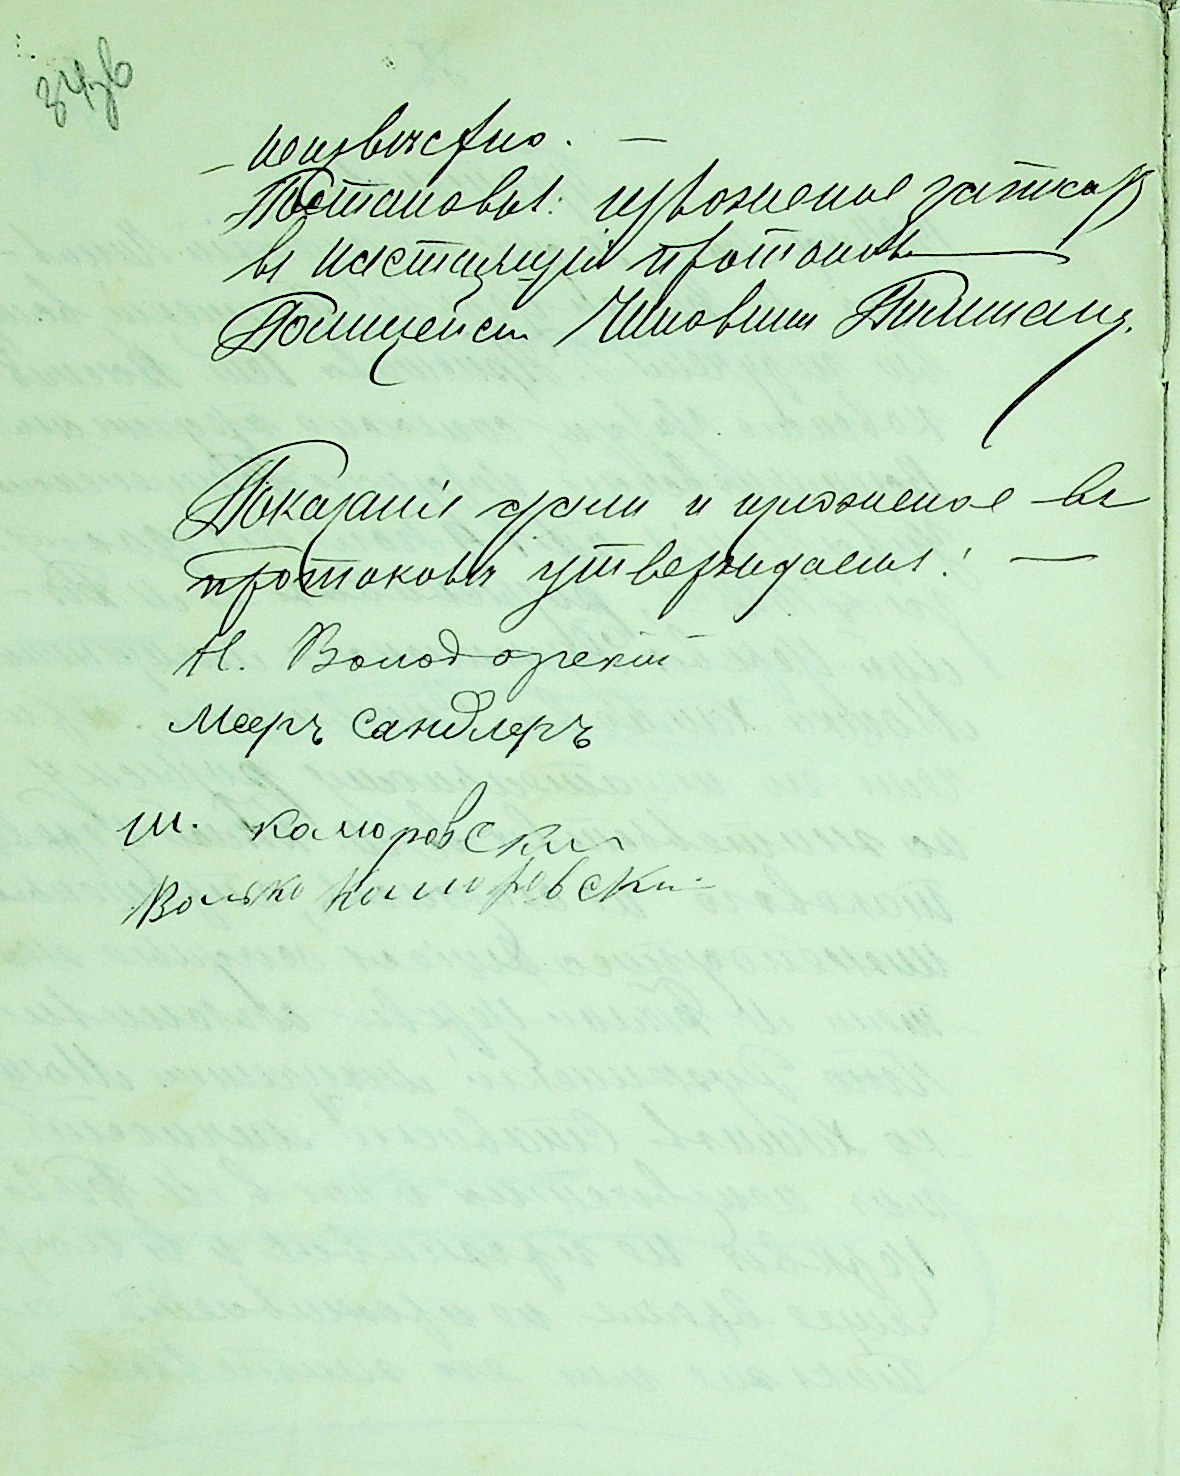 неизвѣстно. —
Постановилъ: изложенное записать
въ настоящій протоколъ
Полицейскі Чиновникъ
Показанія дали и изложенное въ
протоколѣ утверждаемъ: —
Н. Володарскій
Мееръ Сандлеръ
Ш. Каморовски
Волько Каморовски